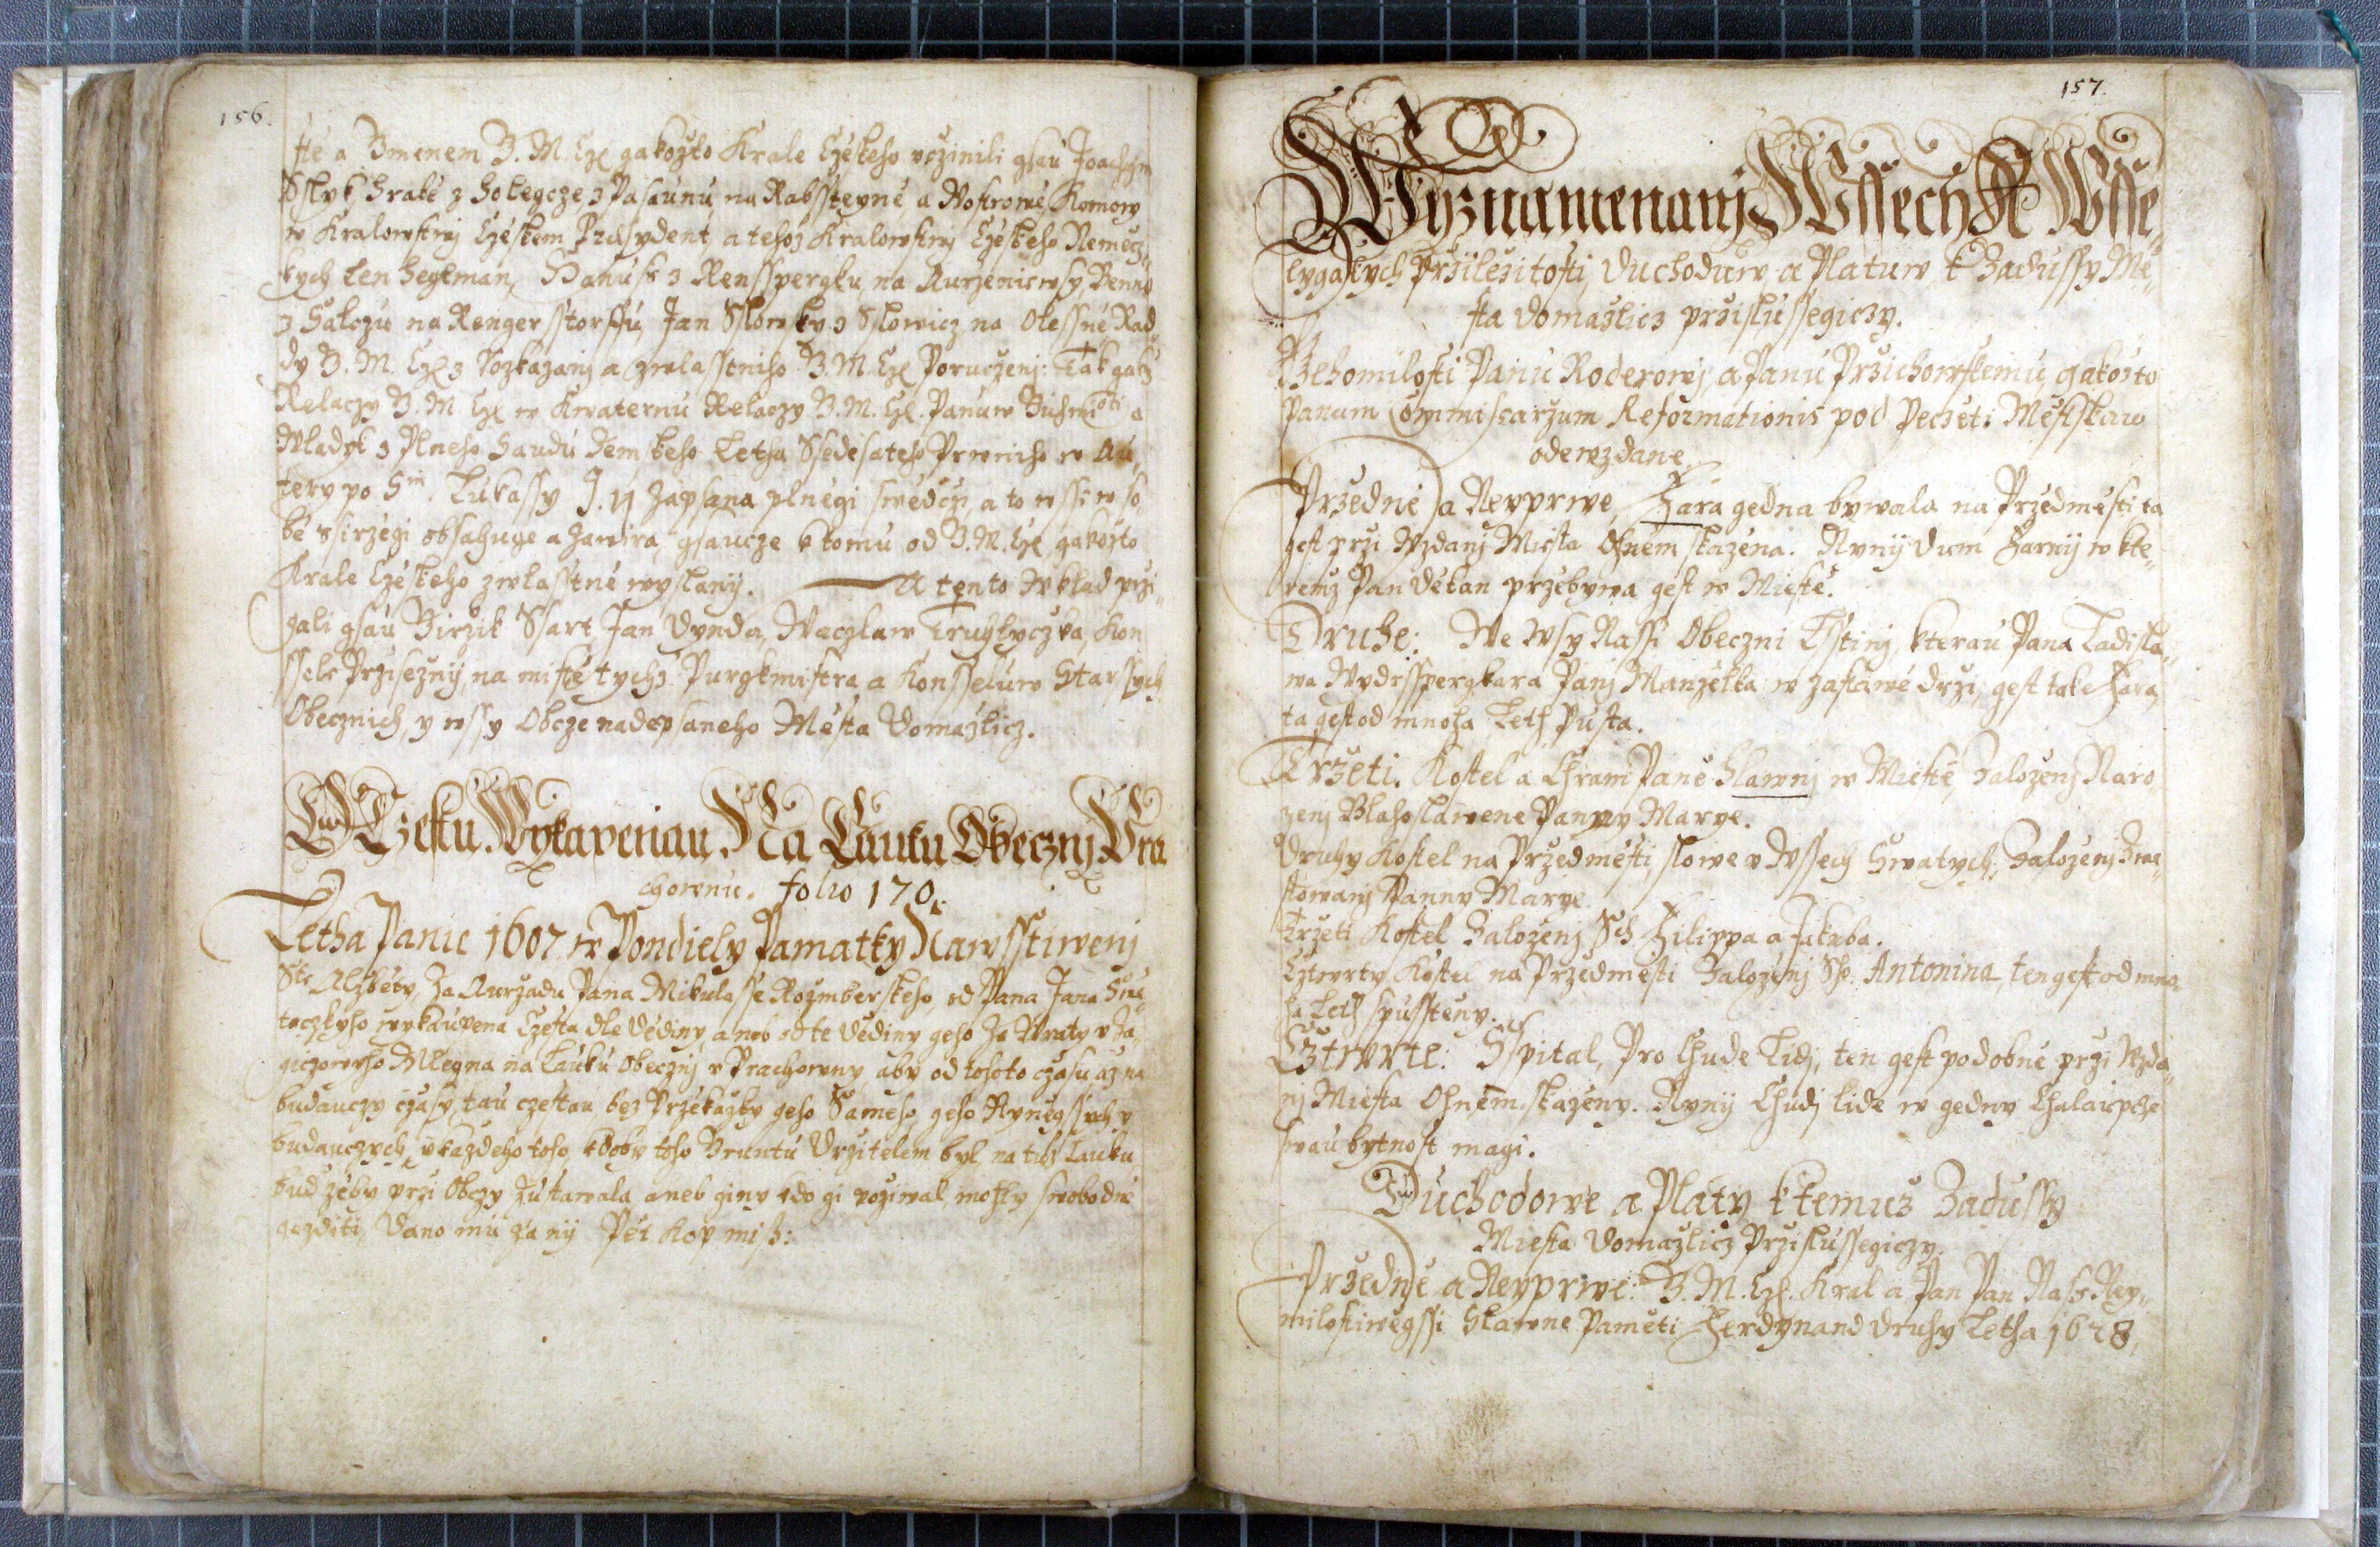 156.
ste a Zmenem J. M. Cze gakožto Krale Czeskeho vczinili gsau Joachym
Sslyk Hrabě z Holegcze z Pasaunu na Rabssteyně, a Nostrowě, Komory
w Kralowstwj Czeskem Prźesydent, a tehož Kralowstwj Czeskeho Nemecz„
kych Len Hegtman, Hanuss z Rensspergku, na Aurzeniowsy Benno
z Salczu na Rengersstorffu, Jan Sslowsky z Slowicz na Olessně Rad„
dy J. M. Cze z rozkazanj a zwlasstniho J. M. Cze Poruczenj: Tak gakž
Relaczy J. M. Cze w Kwaternu Relaczy J. M. Cze. Panuw Buhmioti a
Wladyk z Plneho Saudu Zemskeho Letha Ssedesateho Prwniho w Au„
tery po Sm. Lukassy J. 11 Zapsana plnegi swědczi, a to wsse w so
bě ssirzegi obsahuge a zawira, gsaucze k tomu od J. M. Cze gakožto
Krale Czeskeho zwlasstně wyslanij. A tento Wklad przi„
gali gsau Girzik Ssart, Jan Dynda, Waczlaw Truhlyczka, Kon
ssele Przisežnij, na mistě tychž Purgkmistra a Konsseluw Starssych
Obecznich, y wssy Obcze nadepsaneho Města Domažlicz.
O Czestu Wykaupenau Na Lauku Obecznj Pra
chownu. folio 170.
Letha Panie 1607 w Pondiely Pamatky Nawsstiwenj
Ste Alžběty, Za Aurzadu Pana Mikulasse Rozmberskeho, od Pana Jana
toczkyho wykaupena Czesta dle Dědiny, aneb od te Dědiny geho Za Wraty v Za„
giczowyho Mlegna na Lauku Obecznj v Prachowny, aby od tohoto czasu až na
budauczy czasy, tau czestau bez Przekažky geho Sameho, geho Nyněgssych y
budauczych, y každeho toho, kdoby toho Gruntu Držitelem byl, na tuž Lauku
bud žeby przi Obczy Zustawala aneb giny kdo gi požiwal, mohly swobodně
gezditi, Dano mu za nij Pět Kop miss:
157.
Wyznamenanj Wssech A Wsse„
lygakych Prziležitosti, Duchoduw a Platuw k Zadussy Mě„
sta Domažlicz przislussegiczy.
Geho milosti Panu Roderowj a Panu Przichowskemu gakožto
Panum Commissarzum Reformationis pod Peczeti Městskau
odewzdane.
Przedně a Neyprwe, Fara gedna bywala na Przedměsti ta
gest przi Wzdanj Miesta Ohněm skažena. Nynij Dum Farnij w kte„
remž Pan Děkan przebywa gest w Miestě.
Druhe: We Wsy Nassi Obeczni Lsstinj, kterau Pana Ladisla„
wa Wydrsspergkara Panj Manželka w zastawě drži, gest take Fara,
ta gest od mnoha Leth Pusta.
Trzeti. Kostel a Chram Paně hlawnj w Miestě, Založenj Naro
zenj Blahoslawene Panny Marye.
Druhy Kostel na Przedměsti, slowe v Wssech Swatych. Založenj Zwe„
stowanj Panny Marye.
Trzeti Kostel Založenj Sch Filippa a Jakuba.
Cztwrty Kostel na Przedměsti Založenj Sho. Antonina ten gest od mno„
ha Leth spusstěny.
Cztwrte: Sspital, Pro Chude Lidj, ten gest podobně przi Wzda„
nj Miesta Ohněm skaženy. Nynij Chudj lide w gedny Chalaupcze
swau bytnost magi.
Duchodowe a Platy k temuž Zadussy
Miesta Domažlicz Przislussegiczy.
Przedně a Neyprwe: J. M. Cze. Kral a Pan Pan Nass Ney„
milostiwegssi Slawne Paměti Ferdynand Druhy Letha 1628,